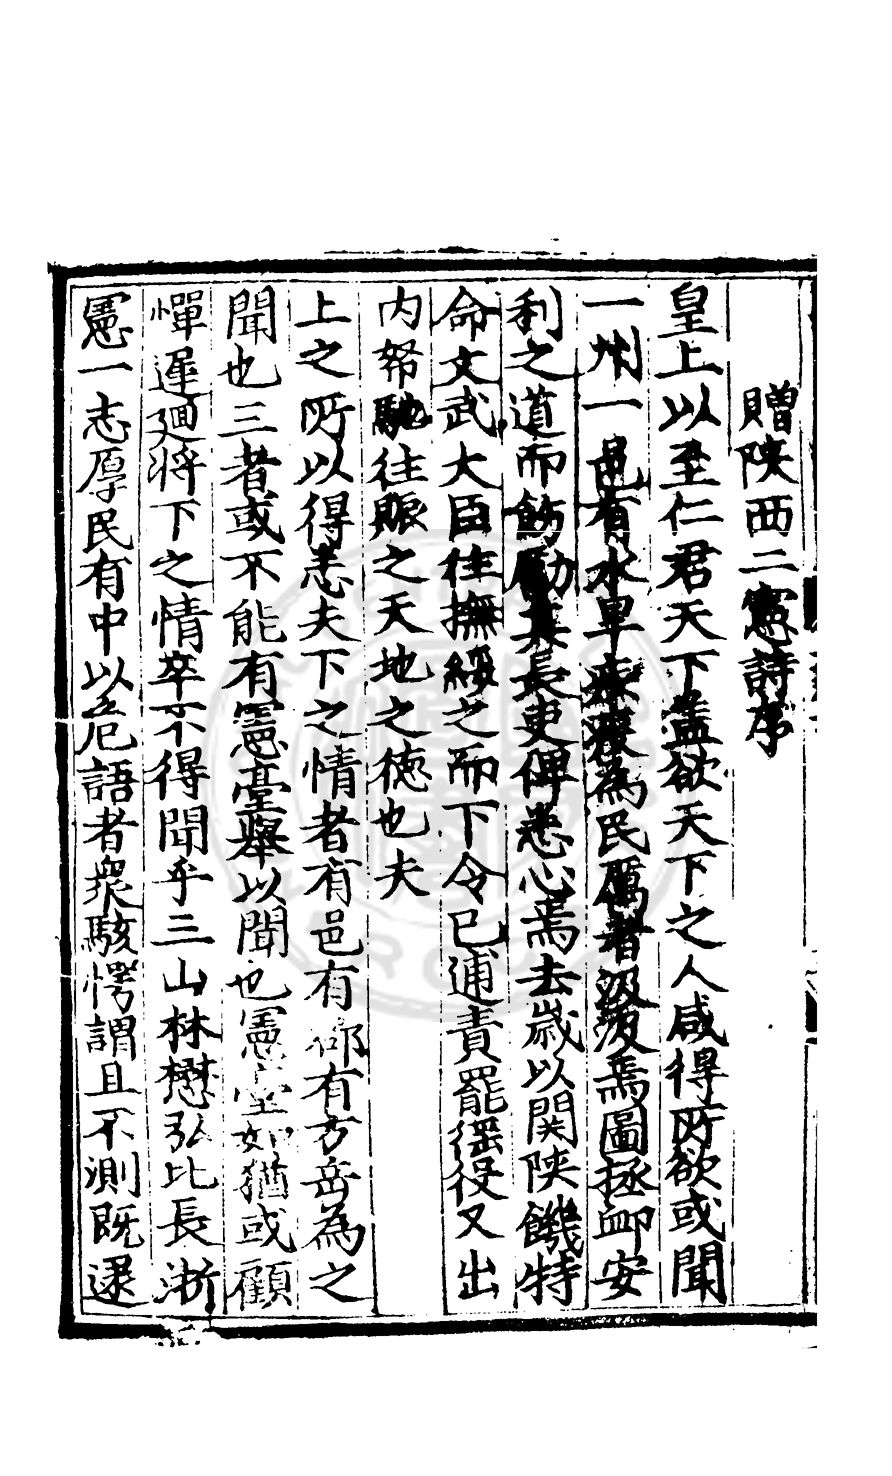 贈陜西二憲詩序
皇上以至仁君天下盖欲天下之人咸得所欲或聞
一州一邑有水旱疾疫為民厲者汲汲焉圖拯卹安
利之道而飭勵其長吏俾悉心焉去歲以関陜饑特
命文武大臣往撫綏之而下令已逋責罷徭役又出
内帑馳往賑之天地之德也夫
上之所以得悉夫下之情者有邑有郡有方岳為之
聞也三者或不能有憲臺舉以聞也憲臺如猶或顧
憚遲廻將下之情卒不得聞乎三山林懋弘比長浙
憲一志厚民有中以危語者衆駭愕謂且不測既逮